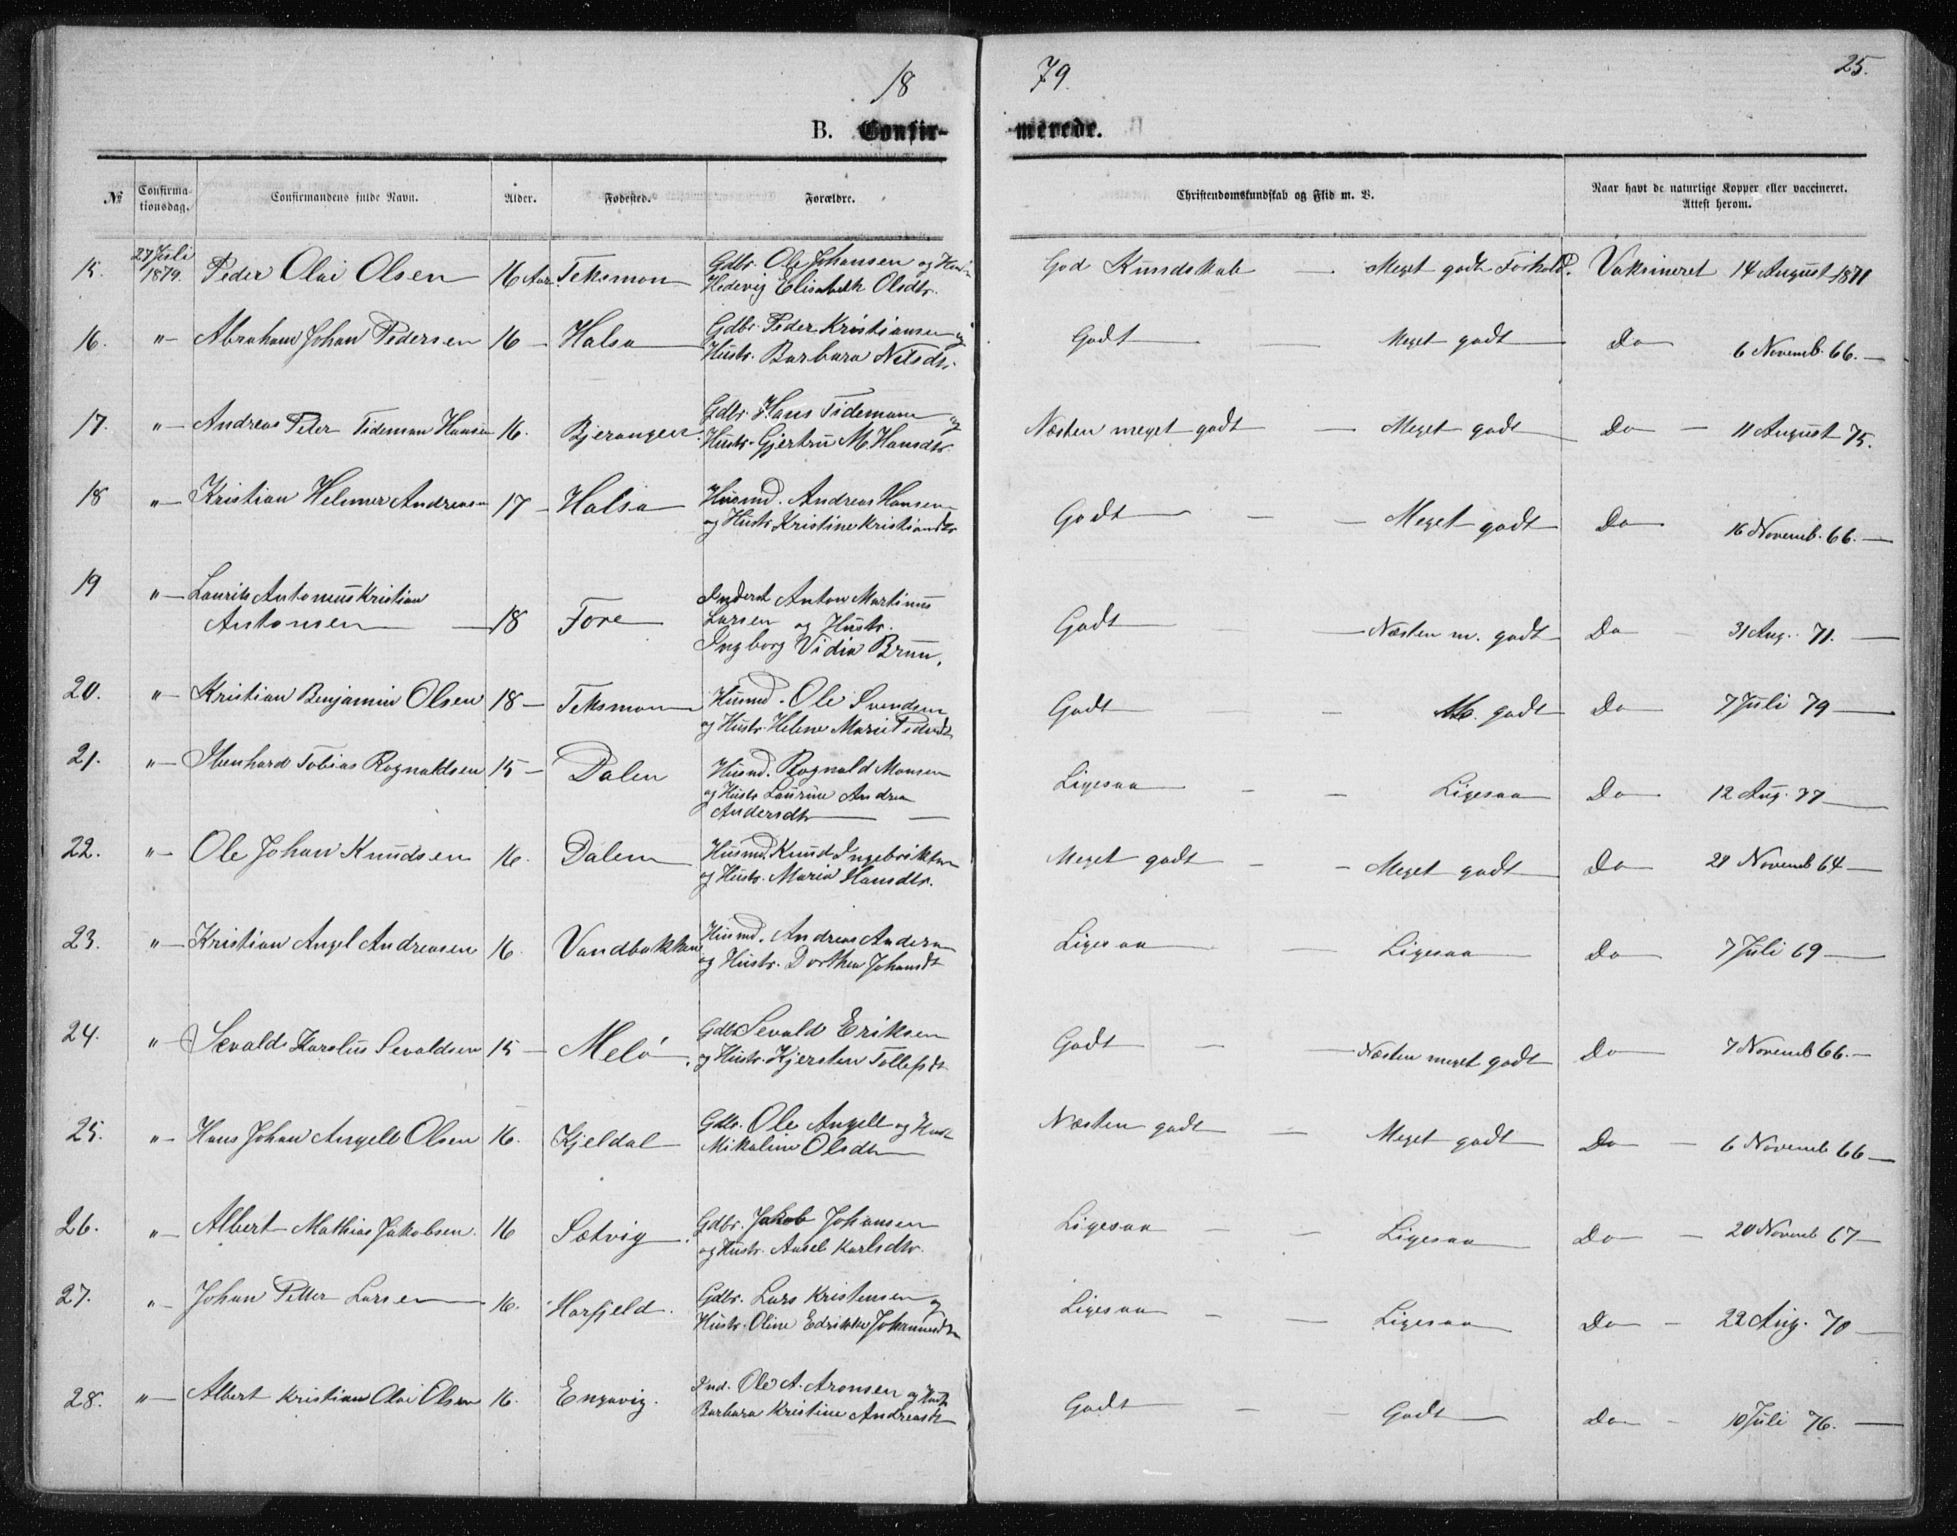 18 79. 25.
B. Confir- merede.
№ Confirma-tionsdag. Confirmandens fulde Navn. Alder. Fødested. Forældre. Christendomskundskab og Flid m. V. Naar havt de naturlige Kopper eller vaccineret. Attest herom.
15. 27 Juli 1879. Peder Olai Olsen 16 Aar Teksmon Gdbr. Ole Johansen og God Kundskab — Meget godt Forhold. Vaksineret 14 August 1871
Hedevig Elisabeth Olsdtr.
16. "— Abraham Johan Pedersen 16 — Halsa Gdbr. Peder Kristiansen og Godt — Meget godt Do — 6 Novemb. 66. —
Hustr. Barbara Nilsdtr.
17. "— Andreas Peter Tideman Hansen 16. Bjerangen. Gdbr. Hans Tideman og Næsten meget godt — Meget godt Do — 11 August 75.
Hustr. Gjertru M. Hansdtr.
18 "— Kristian Helmer Andreasen 17 — Halsa Husmd. Andreas Hansen Godt — — Meget godt Do — 16 Novemb. 66. —
og Hustr. Kristine Kristiansdtr
19 "— Laurits Antonius Kristian Inderst Anton Martinus
Antonsen — 18 Fore Larsen og Hustr. Godt — — Næsten m. godt Do — 31 Aug. 71. —
Ingborg Vidia Bruun.
20. "— Kristian Benjamin Olsen 18 — Teksmon Husmd. Ole Svendsen Godt — — M. godt Do — 7 Juli 79 —
og Hustr. Helene Marie Pedersdt
21. "— Ibenhard Tobias Rognaldsen 15 — Dalen Husmd. Rognald Monsen Ligesaa — — Ligesaa Do — 12 Aug. 77 —
og Hustr. Laurine Andrea
Andersdtr — —
22. "— Ole Johan Knudsen 16. Dalen Husmd. Knud Ingebriktsen Meget godt — — Meget godt Do — 28 Novemb 64 —
og Hustr. Maria Hansdtr.
23. "— Kristian Angel Andreasen 16. Vandbakken Husmd. Andreas Andersen Ligesaa — Ligesaa Do — 7 Juli 69 —
og Hustr. Dorthea Johansdt
24. "— Sevald Karolus Sevaldsen 15 — Melö Gdbr Sevald Eriksen Godt — — Næsten meget godt Do — 7 Novemb 66. —
og Hustr. Kjersten Tollefsdt
25. "— Hans Johan Angell Olsen 16. Kjeldal Gdbr. Ole Angell og Hust Næsten godt — Meget godt Do — 6 Novemb 66 —
Mikaline Olsdtr
26. "— Albert Mathias Jakobsen. 16 Sætvig. Gdbr. Jakob Johansen Ligesaa — — Ligesaa Do — 20 Novemb 67 —
og Hustr. Karlsdtr.
27. "— Johan Petter Larsen 16. Harfjeld. Gdbr. Lars Kristensen og Ligesaa — — Ligesaa Do — 22 Aug. 70 —
Hustr. Oline Edrikke Johannesdtr
28. "— Albert Kristian Olai Olsen 16. Engavig. Ind. Ole A. Aronsen og Hustr Godt — — Godt Do — 10 Juli 76. —
Barbara Kristine Andreasdtr